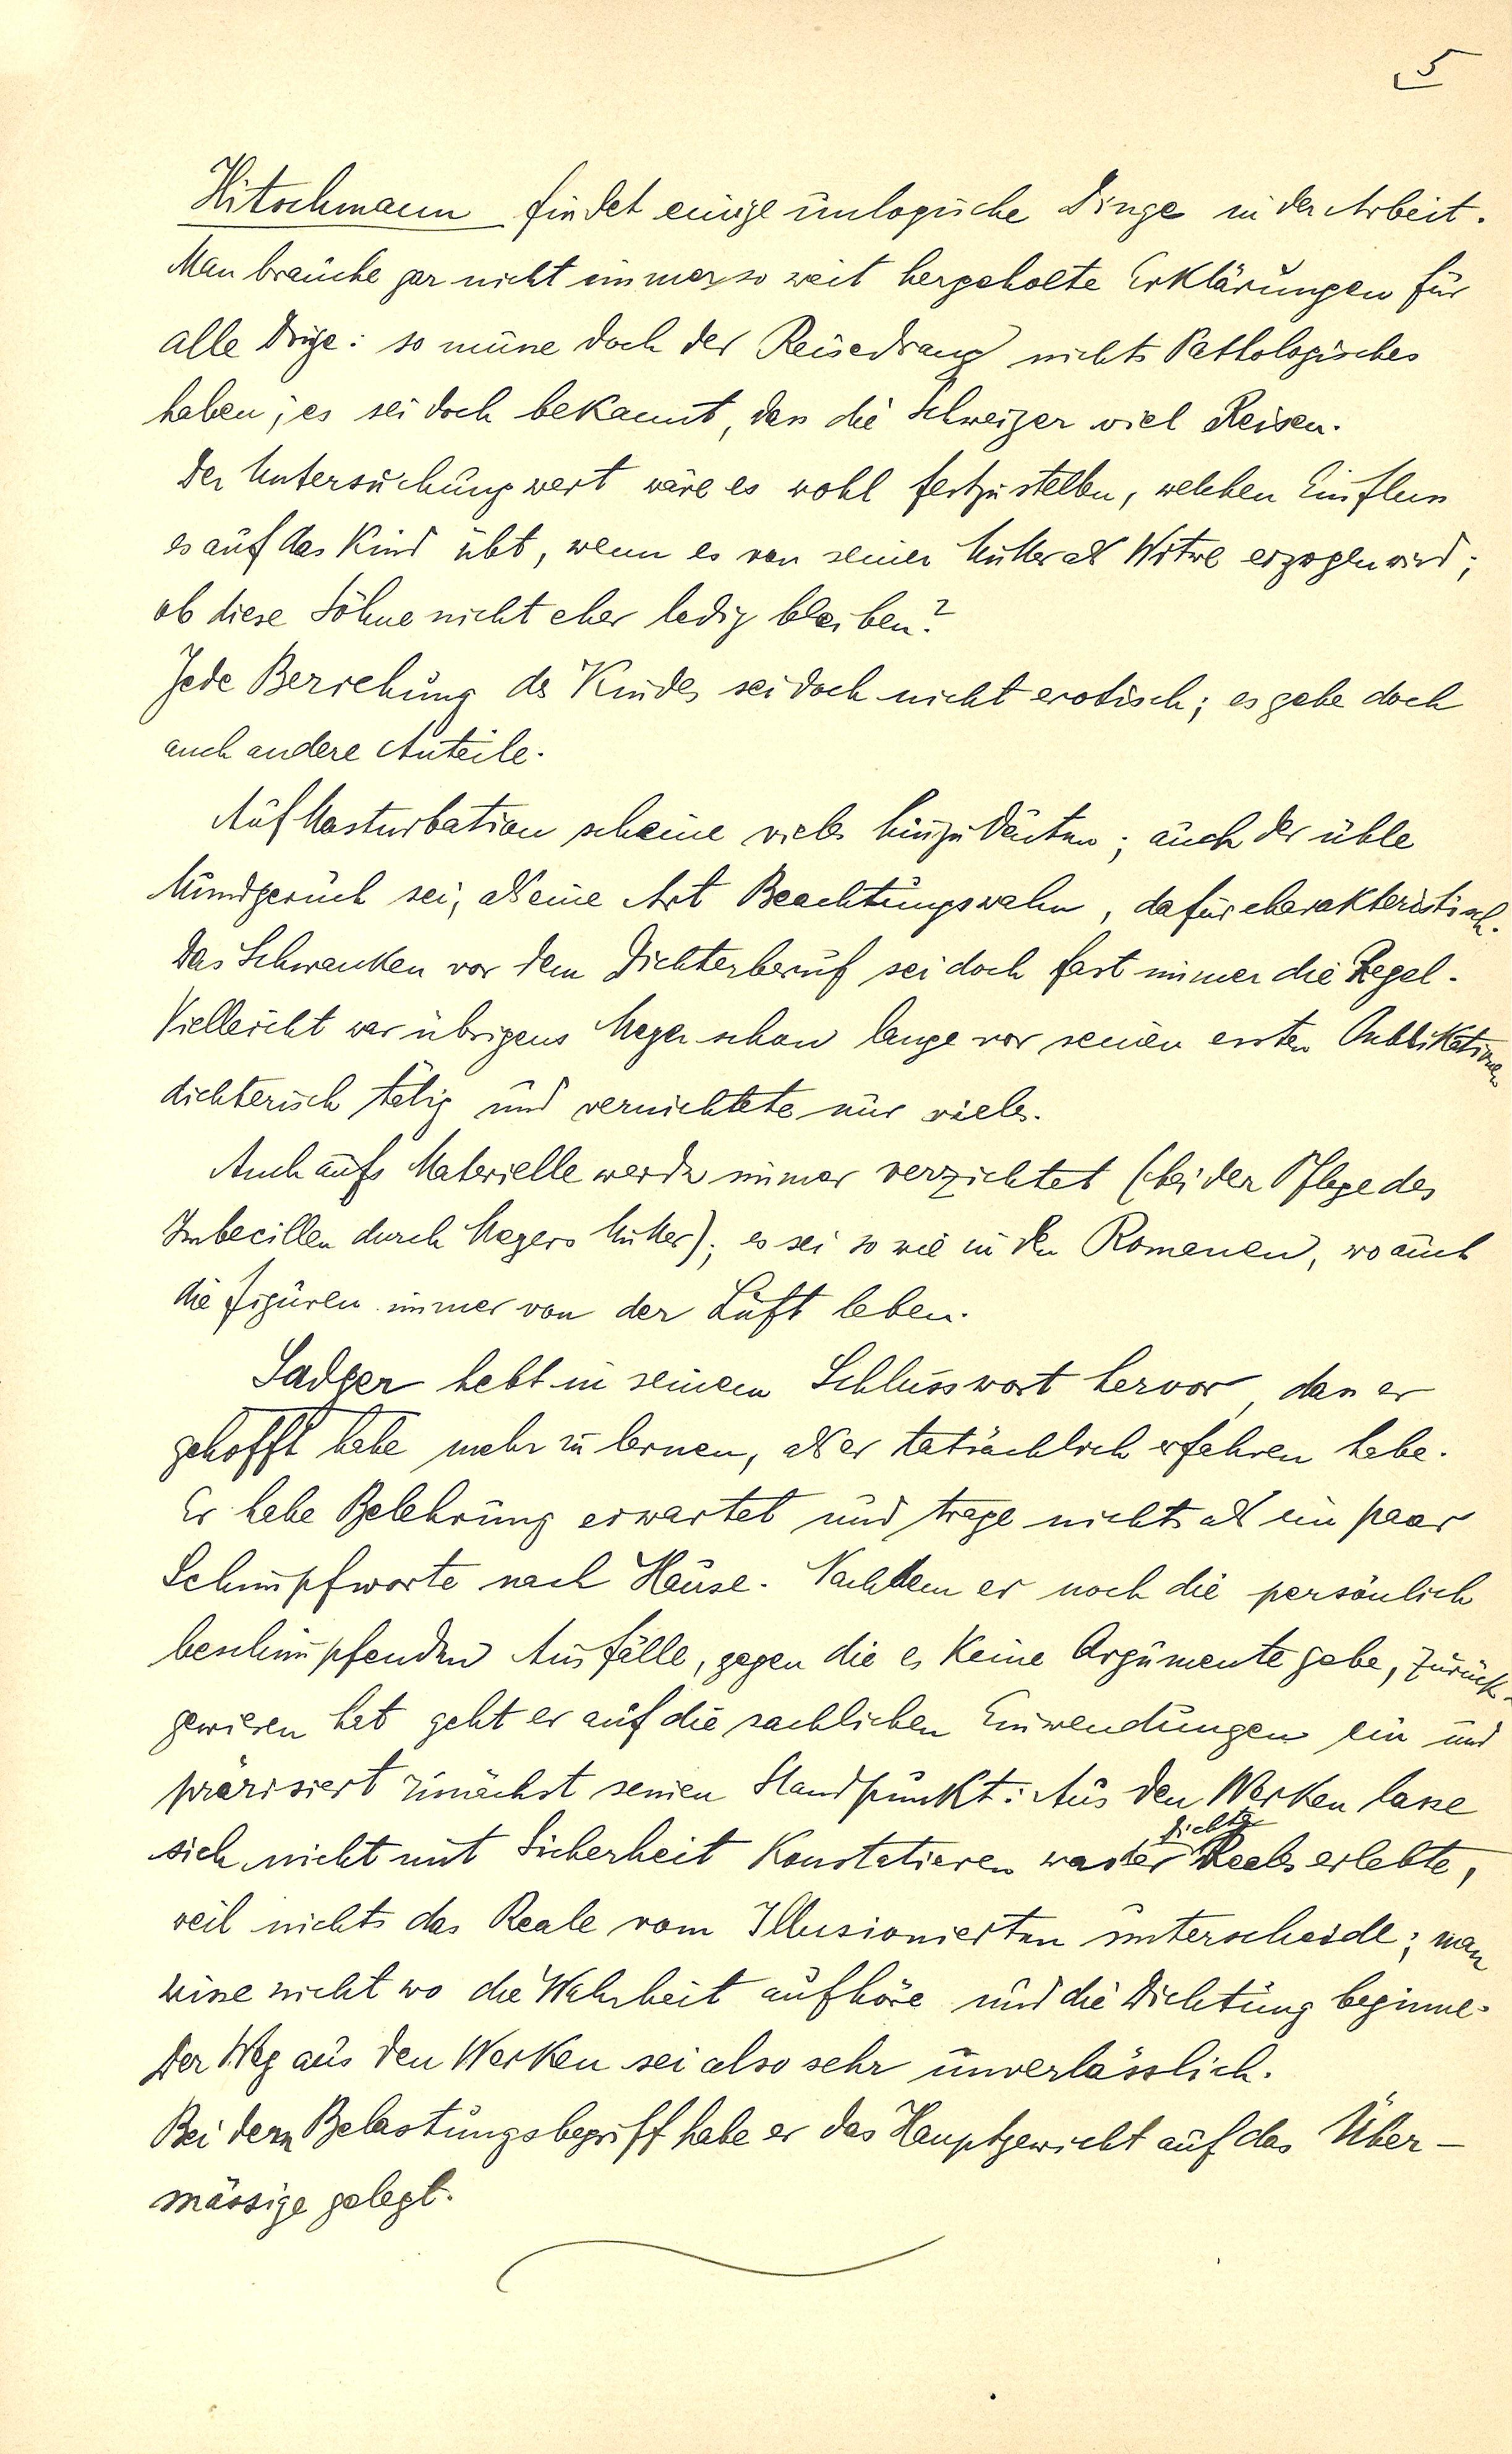 5
Hitschmann findet einige unlogische Dinge in der Arbeit.
Man brauche gar nicht immer so weit hergeholte Erklärungen für
alle Dinge: so müsse doch der Reisedrang nichts Pathologisches
haben; es sei doch bekannt, dass die Schweizer viel Reisen.
Der Untersuchung wert wäre es wohl festzustellen, welchen Einfluss
es auf das Kind übt, wenn es von seiner Mutter als Witwe erzogen wird;
ob diese Söhne nicht eher ledig bleiben?
Jede Beziehung des Kindes sei doch nicht erotisch; es gebe doch
auch andere Anteile.
Auf Masturbation scheine vieles hinzudeuten; auch der üble
Mundgeruch sei, als eine Art Beachtungswahn, dafür charakteristisch.
Das Schwanken vor dem Dichterberuf sei doch fast immer die Regel.
Vielleicht war übrigens Meyer schon lange vor seinen ersten Publikationen
dichterisch tätig und vernichtete nur vieles.
Auch aufs Materielle werde immer verzichtet (bei der Pflege des
Imbecillen durch Meyers Mutter); es sei so wie in den Romanen, wo auch
die Figuren immer von der Luft leben.
Sadger hebt in seinem Schlusswort hervor, dass er
gehofft habe mehr zu lernen, als er tatsächlich erfahren habe.
Er habe Belehrung erwartet und trage nichts als ein paar
Schimpfworte nach Hause. Nachdem er noch die persönlich
beschimpfenden Ausfälle, gegen die es keine Argumente gebe, zurück-
gewiesen hat geht er auf die sachlichen Einwendungen ein und
präzisiert zunächst seinen Standpunkt: Aus den Werken lasse
sich nicht mit Sicherheit konstatieren was der Dichter Reales erlebte,
weil nichts das Reale vom Illusionierten unterscheide; man
wisse nicht wo die Wahrheit aufhöre und die Dichtung beginne.
Der Weg aus den Werken sei also sehr unverlässlich.
Bei dem Belastungsbegriff habe er das Hauptgewicht auf das Über-
mässige gelegt.